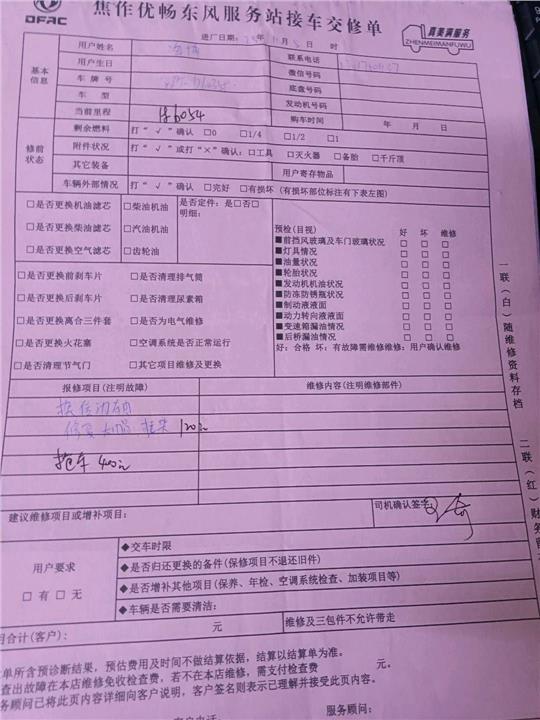 DFAC
焦作优畅东风服务站接车交修单
真美满服务
ZHENMEIMANFUWU
进厂日期: 年 月 日 时
基本信息
用户姓名
联系电话
用户生日
微信号码
车牌号
底盘号码
车型
发动机号码
当前里程
购车时间 年 月 日
修前状态
剩余燃料 打“√”确认 □0 □1/4 □1/2 □1
附件状况 打“√”或打“×”确认:□工具 □灭火器 □备胎 □千斤顶
其它装备
用户寄存物品
车辆外部情况 打“√”确认 □完好 □有损坏(有损坏部位标注有下表左图)
□是否更换机油滤芯 □柴油机油 是否定件:是□否□
明细:
□是否更换柴油滤芯 □汽油机油
□是否更换空气滤芯 □齿轮油
□是否更换前刹车片 □是否清理排气筒
□是否更换后刹车片 □是否清理尿素箱
□是否更换离合三件套 □是否为电气维修
□是否更换火花塞 □空调系统是否正常运行
□是否清理节气门 □其它项目维修及更换
预检(目视) 好 坏 维修
■前挡风玻璃及车门玻璃状况 □ □ □
■灯具情况 □ □ □
■油量状况 □ □ □
■轮胎状况 □ □ □
■发动机机油状况 □ □ □
■防冻防锈瓶状况 □ □ □
■制动液液面 □ □ □
■动力转向液液面 □ □ □
■变速箱漏油情况 □ □ □
■后桥漏油情况 □ □ □
好:合格 坏:有故障需维修维修:用户确认维修
报修项目(注明故障)
维修内容(注明维修部件)
120元
拖车 400元
建议维修项目或增补项目:
司机确认签字:
用户要求
□有 □无
◆交车时限
◆是否归还更换的备件(保修项目不退还旧件)
◆是否增补其他项目(保养、年检、空调系统检查、加装项目等)
◆车辆是否需要清洁:
用合计(客户): 元
维修及三包件不允许带走
单所含预诊断结果,预估费用及时间不做结算依据,结算以结算单为准。
查出故障在本店维修免收检查费,若不在本店维修,需支付检查费 元。
务顾问已将此页内容详细向客户说明,客户签名则表示已理解并接受此页内容。
服务顾问:
一联(白)随维修资料存档
二联(红)财务